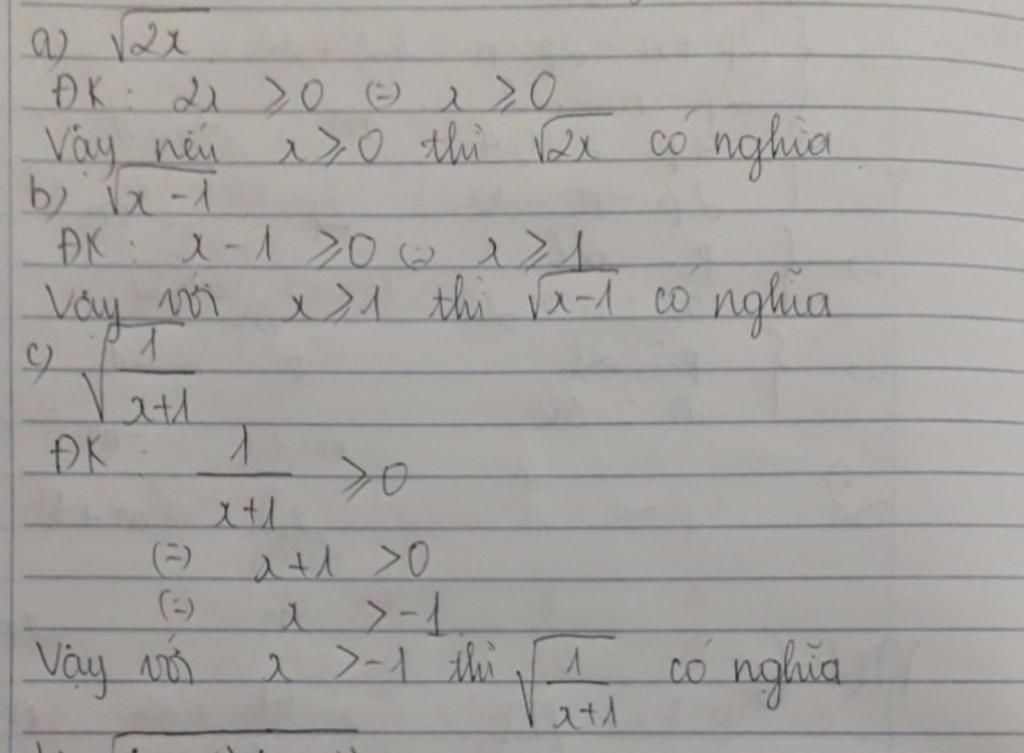 a) √2x
ĐK: 2x ≥ 0 (=) x ≥ 0
Vậy nếu x ≥ 0 thì √2x có nghĩa
b) √x - 1
ĐK: x - 1 ≥ 0 (=) x ≥ 1
Vậy với x ≥ 1 thì √x-1 có nghĩa
c) √1/x+1
ĐK: 1/x+1 ≥ 0
(=) x+1 > 0
(=) x > -1
Vậy với x > -1 thì √1/x+1 có nghĩa